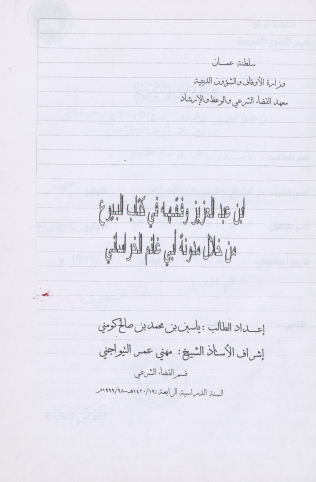 سلطنة عمان
وزارة الأوقاف والشؤون الدينية
معهد القضاء الشرعي والوعظ والإرشاد
ابن عبد العزيز وفقهه في كتاب البيوع
من خلال مدونة أبي غانم الخراساني
إعداد الطالب : ياسين بن محمد بن صالح كومني
إشراف الأستاذ الشيخ : مهني عمر التيواجني
قسم القضاء الشرعي
السنة الدراسية الرابعة : ١٤٢٠/١٩هـ-١٩٩٩/٩٨م